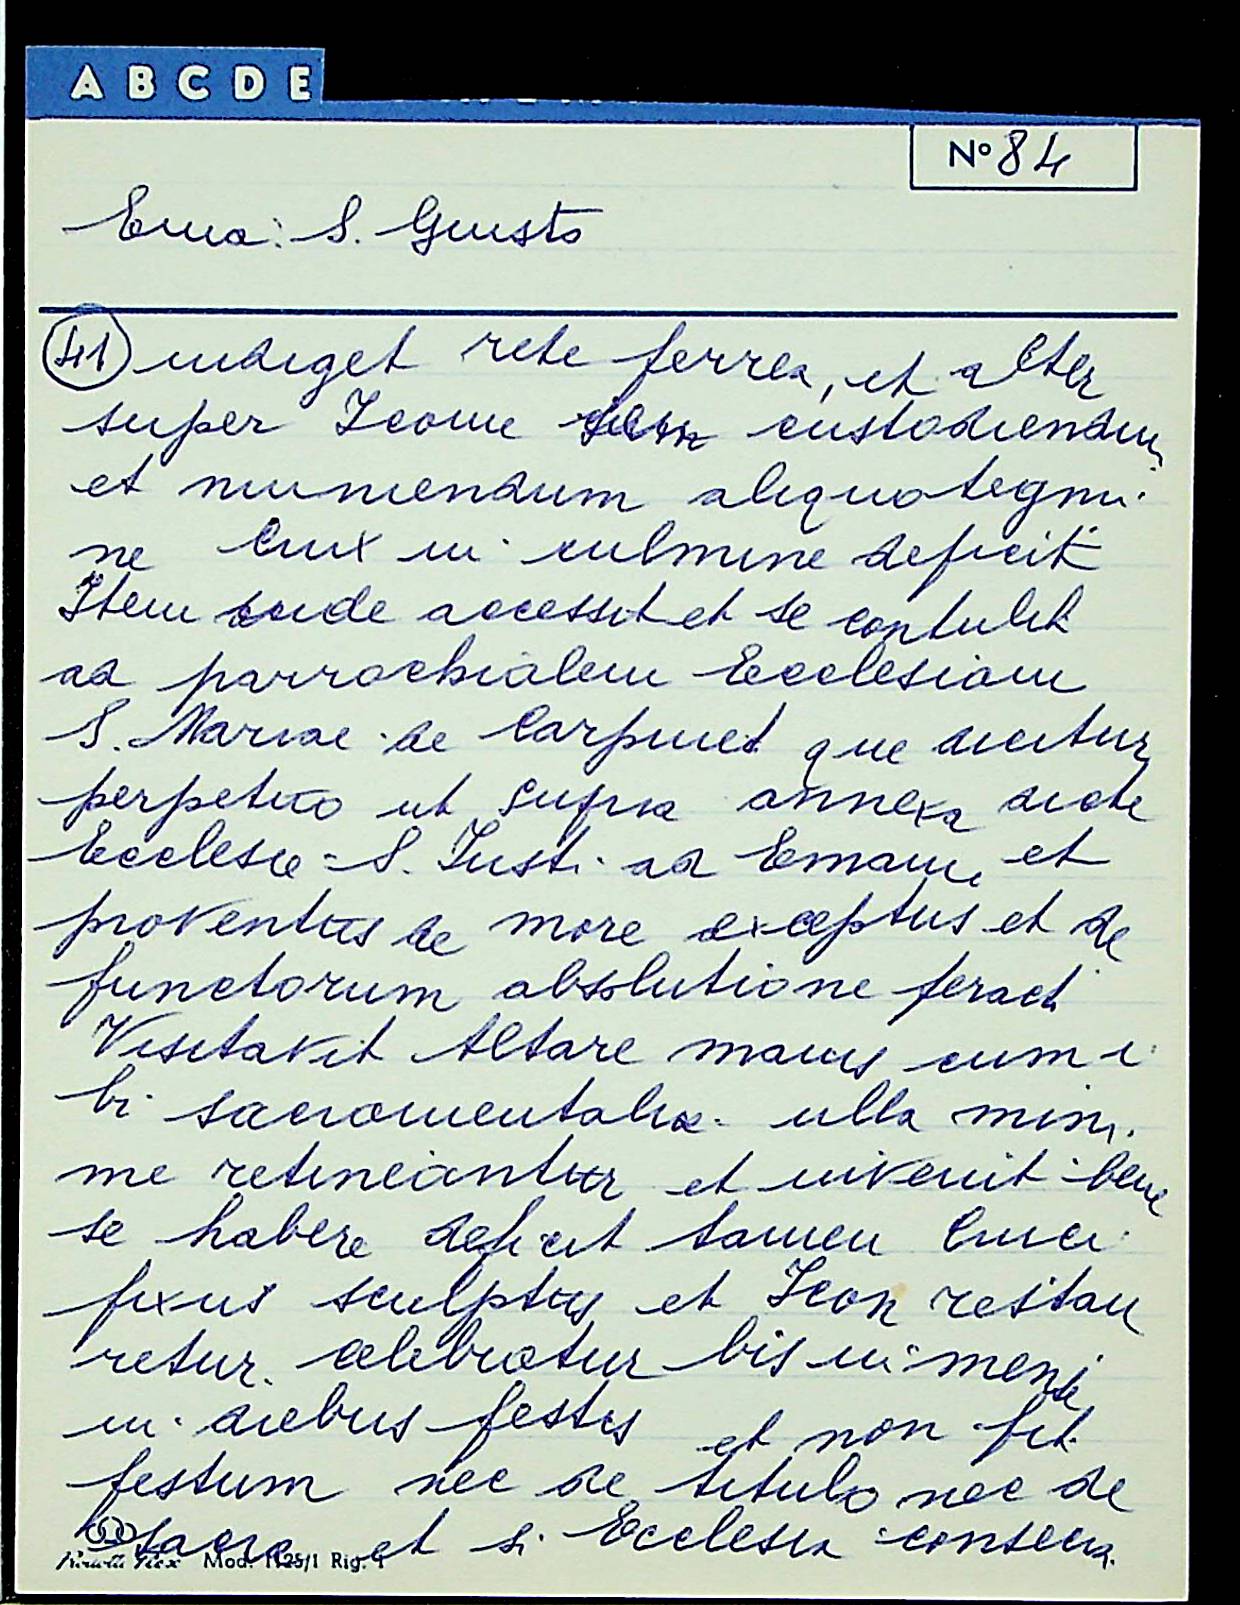 A B C D E
Nº 84
Ema: S. Giusto
41 indiget rete ferrea, et alter
super Icone custodiendum
et muniendum aliquo tegmi-
ne Crux in culmine deficit
Item inde accessit et se contulit
ad parrochialem Ecclesiam
S. Mariae de Carpinet que dicitur
perpetuo ut supra annexa dicte
Ecclesie S. Justi ad Emam, et
proventus de more exceptus et de
functorum absolutione feract
Visitavit Altare maius cum i-
bi sacramentalia ulla mini-
me retineantur et invenit bene
se habere deficit tamen Cruci-
fixus sculptus et Icon restau
retur. celebratur bis in mense
in diebus festis et non fit
festum nec de titulo nec de
sacra et si Ecclesia consecra
Mod. 1125/1 Rig. 1